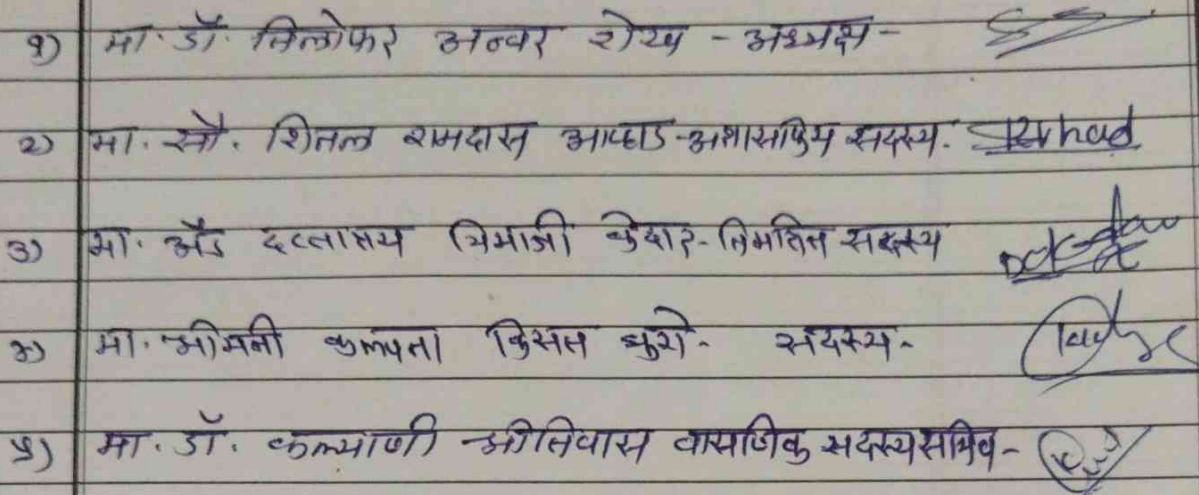 १) मा. डॉ. निलोफर अन्वर शेख - अध्यक्ष -
२) मा. सौ. शितल रामदास आव्हाड - अशासकिय सदस्य.
३) मा. अॅड दत्तात्रय भिमाजी केदार - निमंत्रित सदस्य
४) मा. श्रीमती कल्पना किसन कुरो - सदस्य -
५) मा. डॉ. कल्याणी श्रीनिवास वासणिक सदस्य सचिव -